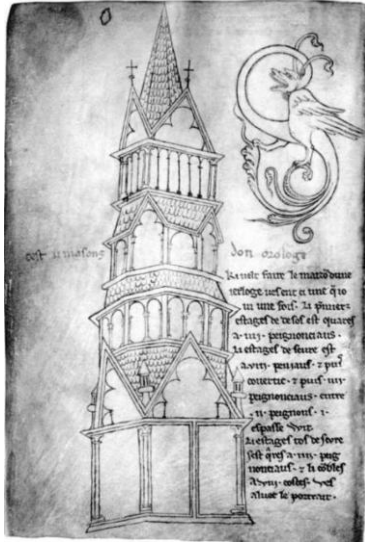 cest li masons don orologe
Ki velt faire le maizo dune
ierloge ues ent ci une q̃ io
ui une fois. li prumiers
estages de desos est quares
a .iiii. peignonciaus.
li estages de seure est
a .viii. peniaus. ⁊ puis
couertic. ⁊ puis .iiii.
peignonciaus. entre
.ii. peignons .i.
espasse wit.
li estages tos de seure
sest q̃res a .iiii. peig
nonciaus. ⁊ li cõbles
a .viii. costes. ves
aluoc le portrait.